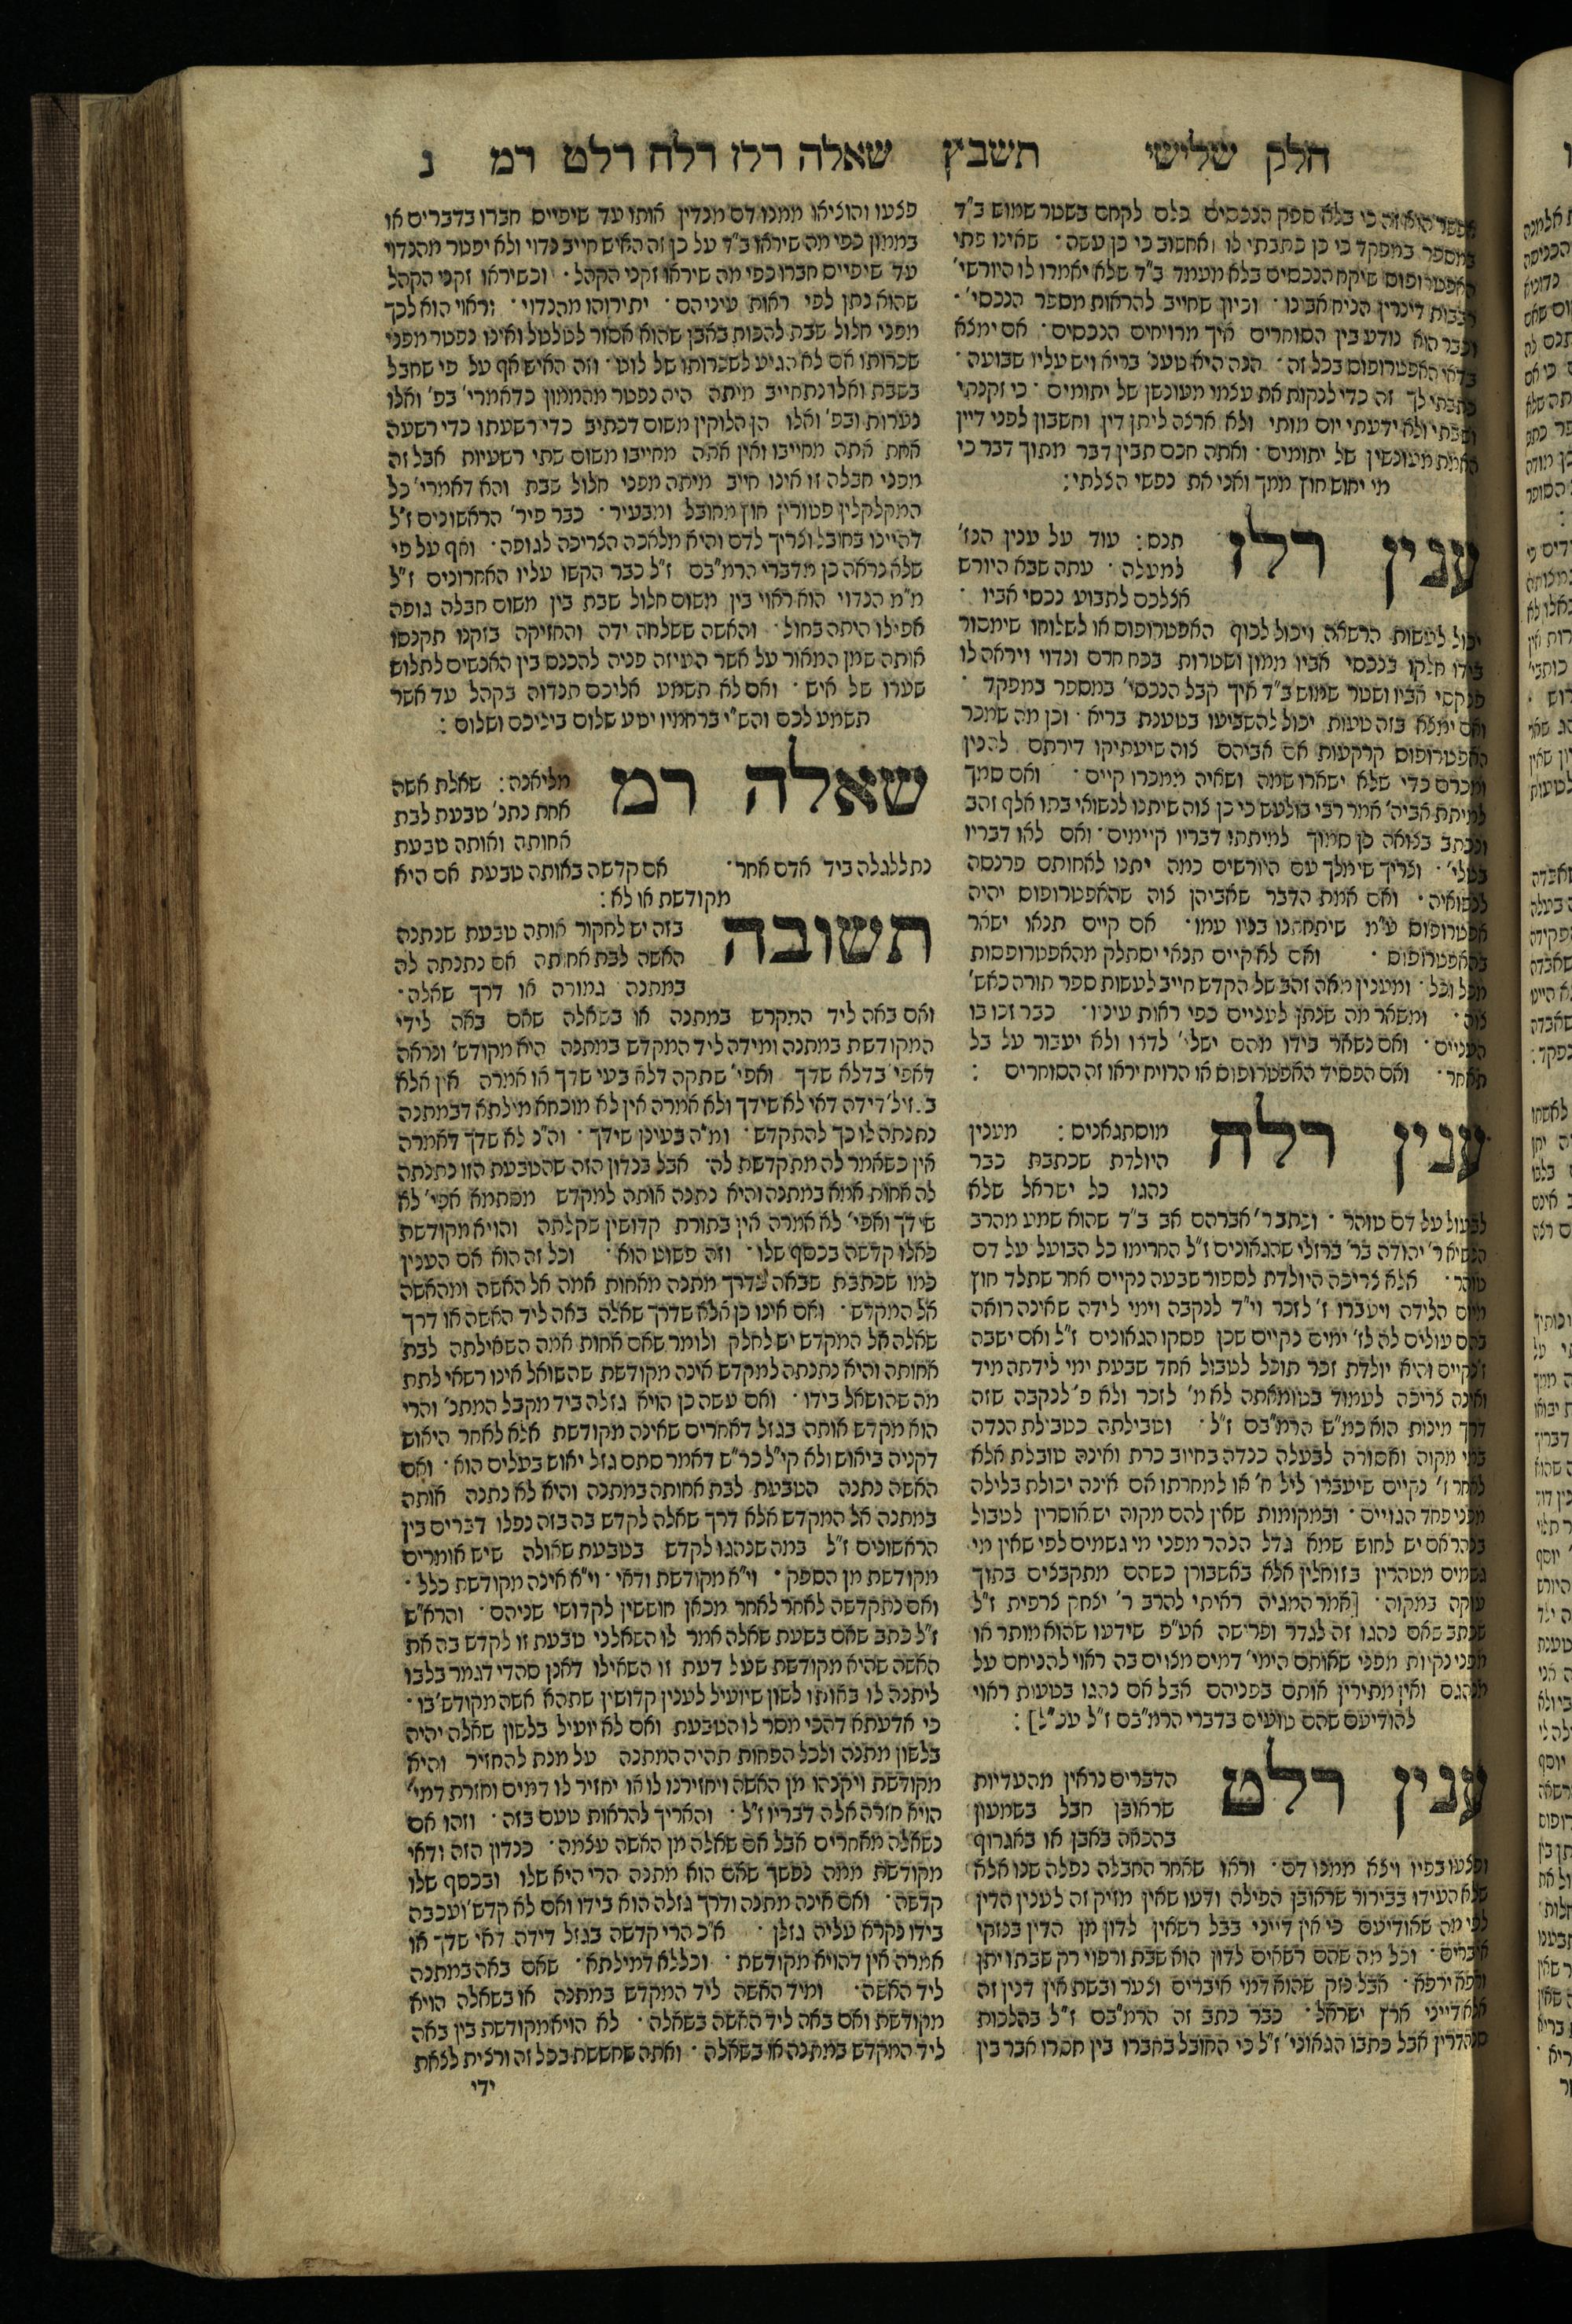 חלק שלישי תשבץ שאלה רלז רלח רלט רמ נ
אפשר הוא זה כי בלא ספק הנכסים כלם לקחם בשטר שמוש ב"ד
במספר במפקד כי כן כתבתי לו ואחשוב כי כן עשה · שאינו פתי
האפטרופוס שיקח הנכסים בלא מעמד ב"ד שלא יאמרו לו היורשי'
רבבות דינרין הניח אבינו · וכיון שחייב להראות מספר הנכסי' ·
וכבר הוא נודע בין הסוחרים איך מרויחים הנכסים · אם ימצא
בדאי האפטרופוס בכל זה · הנה היא טענ' בריא ויש עליו שבועה ·
כתבתי לך זה כדי לנקות את עצמי מעונשן של יתומים · כי זקנתי
ושבתי ולא ידעתי יום מותי ולא ארצה ליתן דין וחשבון לפני דיין
האמת מעונשין של יתומים · ואתה חכם תבין דבר מתוך דבר כי
מי יחוש חוץ ממך ואני את נפשי הצלתי :
ענין רלז
תנס : עוד על ענין הנז'
למעלה · עתה שבא היורש
אצלכם לתבוע נכסי אביו ·
יכול לעשות הרשאה ויכול לכוף האפטרופוס או לשלוחו שימסור
בידו חלקו בנכסי אביו ממון ושטרות בכח חרם ונדוי ויראה לו
פנקסי אביו ושטר שמוש ב"ד איך קבל הנכסי' במספר במפקד ·
ואם ימצא בזה טעות יכול להשביעו בטענת בריא · וכן מה שמכר
האפטרופוס קרקעות אם אביהם צוה שיעתיקו דירתם להכין
ומכרם כדי שלא ישארו שמה ושאיה ממכרו קיים · ואם סמך
למיתת אביה' אמר רבי בולעש כי כן צוה שיתנו לנשואי בתו אלף זהב
ונכתב בצואה כן סמוך למיתתו דבריו קיימים · ואם לאו דבריו
בטלי' · וצריך שימלך עם היורשים כמה יתנו לאחותם פרנסה
לנשואיה · ואם אמת הדבר שאביהן צוה שהאפטרופוס יהיה
אפטרופוס ע"מ שיתחתנו בניו עמו · אם קיים תנאו ישאר
באפטרופוס · ואם לא קיים תנאי יסתלק מהאפטרופסות
מכל וכל · ומענין מאה זהב של הקדש חייב לעשות ספר תורה כאש'
צוה · ומשאר מה שנתן לעניים כפי ראות עיניו · כבר זכו בו
העניים · ואם נשאר בידו מהם ישלי' לדרו ולא יעבור על בל
תאחר · ואם הפסיד האפטרופוס או הרויח יראו זה הסוחרים :
ענין רלח
מוסתגאנים : מענין
היולדת שכתבת כבר
נהגו כל ישראל שלא
לבעול על דם טוהר · וכתב ר' אברהם אב ב"ד שהוא שמע מהרב
הנשיא ר' יהודה בר' ברזלי שהגאונים ז"ל החרימו כל הבועל על דם
טוהר · אלא צריכה היולדת לספור שבעה נקיים אחר שתלד חוץ
מיום הלידה ויעברו ז' לזכר וי"ד לנקבה וימי לידה שאינה רואה
בהם עולים לה לז' ימים נקיים שכן פסקו הגאונים ז"ל ואם ישבה
ז' נקיים והיא יולדת זכר תוכל לטבול אחד שבעת ימי לידתה מיד
ואינה צריכה לעמוד בטומאתה לא מ' לזכר ולא פ' לנקבה שזה
דרך מינות הוא כמ"ש הרמ"בם ז"ל · וטבילתה כטבילת הנדה
במי מקוה ואסורה לבעלה כנדה בחיוב כרת ואינה טובלת אלא
לאחר ז' נקיים שיעברו ליל ח' או למחרתו אם אינה יכולת בלילה
מפני פחד הגויים · ובמקומות שאין להם מקוה יש אוסרין לטבול
בנהר אם יש לחוש שמא גדל הנהר מפני מי גשמים לפי שאין מי
גשמים מטהרין בזוחלין אלא באשבורן כשהם מתקבצים בתוך
עוקה במקוה · [אמר המגיה ראיתי להרב ר' יצחק צרפית ז"ל
שכתב שאם נהגו זה לגדר ופרישה אע"פ שידעו שהוא מותר או
מפני נקיות מפני שאותם הימי' דמים מצויים בה ראוי להניחם על
מנהגם ואין מתירין אותם בפניהם אבל אם נהגו בטעות ראוי
להודיעם שהם טועים בדברי הרמ"בם ז"ל עכ"ל] :
ענין רלט
הדברים נראין מהעדיות
שראובן חבל בשמעון
בהכאה באבן או באגרוף
ופצעו בפיו ויצא ממנו דם · וראו שאחר החבלה נפלה שנו אלא
שלא העידו בבירור שראובן הפילה ודעו שאין מזיק זה לענין הדין
לפי מה שאודיעם כי אין דייני בבל רשאין לדון מן הדין בנזקי
איברים · וכל מה שהם רשאים לדון הוא שבת ורפוי רק שבתו יתן
ורפא ירפא · אבל נזק שהוא דמי איברים וצער ובשת אין דנין זה
אלא דייני ארץ ישראל · כבר כתב זה הרמ"בם ז"ל בהלכות
סנהדרין אבל כתבו הגאוני' ז"ל כי החובל בחברו בין חסרו אבר בין
פצעו והוציאו ממנו דם מנדין אותו עד שיפייס חברו בדברים או
בממון כפי מה שיראו ב"ד על כן זה האיש חייב נדוי ולא יפטר מהנדוי
עד שיפייס חברו כפי מה שיראו זקני הקהל · וכשיראו זקני הקהל
שהוא נתן לפי ראות עיניהם · יתירוהו מהנדוי · וראוי הוא לכך
מפני חלול שבת להכות באבן שהוא אסור לטלטול ואינו נפטר מפני
שכרותו אם לא הגיע לשכרותו של לוט · וזה האיש אף על פי שחבל
בשבת ואלו נתחייב מיתה היה נפטר מהממון כדאמרי' בפ' ואלו
נערות ובפ' ואלו הן הלוקין משום דכתיב כדי רשעתו כדי רשעה
אחת אתה מחייבו ואין אתה מחייבו משום שתי רשעיות אבל זה
מפני חבלה זו אינו חייב מיתה מפני חלול שבת והא דאמרי' כל
המקלקלין פטורין חוץ מחובל ומבעיר · כבר פיר' הראשונים ז"ל
דהיינו בחובל וצריך לדם והיא מלאכה הצריכה לגופה · ואף על פי
שלא נראה כן מדברי הרמ"בם ז"ל כבר הקשו עליו האחרונים ז"ל
מ"מ הנדוי הוא ראוי בין משום חלול שבת בין משום חבלה גופה
אפילו היתה בחול · והאשה ששלחה ידה והחזיקה בזקנו תקנסו
אותה שמן המאור על אשר העיזה פניה להכנס בין האנשים לתלוש
שערו של איש · ואם לא תשמע אליכם תנדוה בקהל עד אשר
תשמע לכם והש"י ברחמיו יטע שלום ביניכם ושלום :
שאלה רמ
מליאנה : שאלת אשה
אחת נתנ' טבעת לבת
אחותה ואותה טבעת
נתגלגלה ביד אדם אחר · אם קדשה באותה טבעת אם היא
מקודשת או לא :
תשובה
בזה יש לחקור אותה טבעת שנתנה
האשה לבת אחותה אם נתנתה לה
במתנה גמורה או דרך שאלה ·
ואם באה ליד המקדש במתנה או בשאלה שאם באה לידי
המקודשת במתנה ומידה ליד המקדש במתנה היא מקודש' ונראה
דאפי' בדלא שדך ואפי' שתקה דלא בעי שדך או אמרה אין אלא
דידה דאי לא שידך ולא אמרה אין לא מוכחא מילתא דבמתנה
נתנתה לו כך להתקדש · ומ"ה בעינן שידך · וה"כ לא שדך דאמרה
אין כשאמר לה מתקדשת לה · אבל בנדון הזה שהטבעת הזו נתנתה
לה אחות אמא במתנה והיא נתנה אותה למקדש מסתמא אפי' לא
שידך ואפי' לא אמרה אין בתורת קדושין שקלתה והויא מקודשת
כאלו קדשה בכסף שלו · וזה פשוט הוא · וכל זה הוא אם הענין
כמו שכתבת שבאה בדרך מתנה מאחות אמה אל האשה ומהאשה
אל המקדש · ואם אינו כן אלא שדרך שאלה באה ליד האשה או דרך
שאלה אל המקדש יש לחלק ולומר שאם אחות אמה השאילתה לבת
אחותה והיא נתנתה למקדש אינה מקודשת שהשואל אינו רשאי לתת
מה שהושאל בידו · ואם עשה כן הויא גזלה ביד מקבל המתנ' והרי
הוא מקדש אותה בגזל דאחרים שאינה מקודשת אלא לאחר היאוש
דקניה ביאוש ולא קי"ל כר"ש דאמר סתם גזל יאוש בעלים הוא · ואם
האשה נתנה הטבעת לבת אחותה במתנה והיא לא נתנה אותה
במתנה אל המקדש אלא דרך שאלה לקדש בה בזה נפלו דברים בין
הראשונים ז"ל במה שנהגו לקדש בטבעת שאולה שיש אומרים
מקודשת מן הספק · וי"א מקודשת ודאי · וי"א אינה מקודשת כלל ·
ואם נתקדשה לאחר לאחר מכאן חוששין לקדושי שניהם · והרא"ש
ז"ל כתב שאם בשעת שאלה אמר לו השאלני טבעת זו לקדש בה את
האשה שהיא מקודשת שעל דעת זו השאילו דאנן סהדי דגמר בלבו
ליתנה לו באותו לשון שיועיל לענין קדושין שתהא אשה מקודש' בו ·
כי אדעתא דהכי מסר לו הטבעת ואם לא יועיל בלשון שאלה יהיה
בלשון מתנה ולכל הפחות תהיה המתנה על מנת להחזיר והיא
מקודשת ויקנהו מן האשה ויחזירנו לו או יחזיר לו דמים וחזרת דמי'
הויא חזרה אלה דבריו ז"ל · והאריך להראות טעם בזה · וזהו אם
נשאלה מאחרים אבל אם שאלה מן האשה עצמה · כנדון הזה ודאי
מקודשת ממה נפשך שאם הוא מתנה הרי היא שלו ובכסף שלו
קדשה · ואם אינה מתנה ודרך גזלה הוא בידו ואם לא קדש' ועכבה
בידו נקרא עליה גזלן · א"כ הרי קדשה בגזל דידה דאי שדך או
אמרה אין דהויא מקודשת · וכללא דמילתא · שאם באה במתנה
ליד האשה · ומיד האשה ליד המקדש במתנה או בשאלה הויא
מקודשת ואם באה ליד האשה בשאלה · לא הויא מקודשת בין באה
ליד המקדש במתנה או בשאלה · ואתה שחששת בכל זה ורצית לצאת
ידי